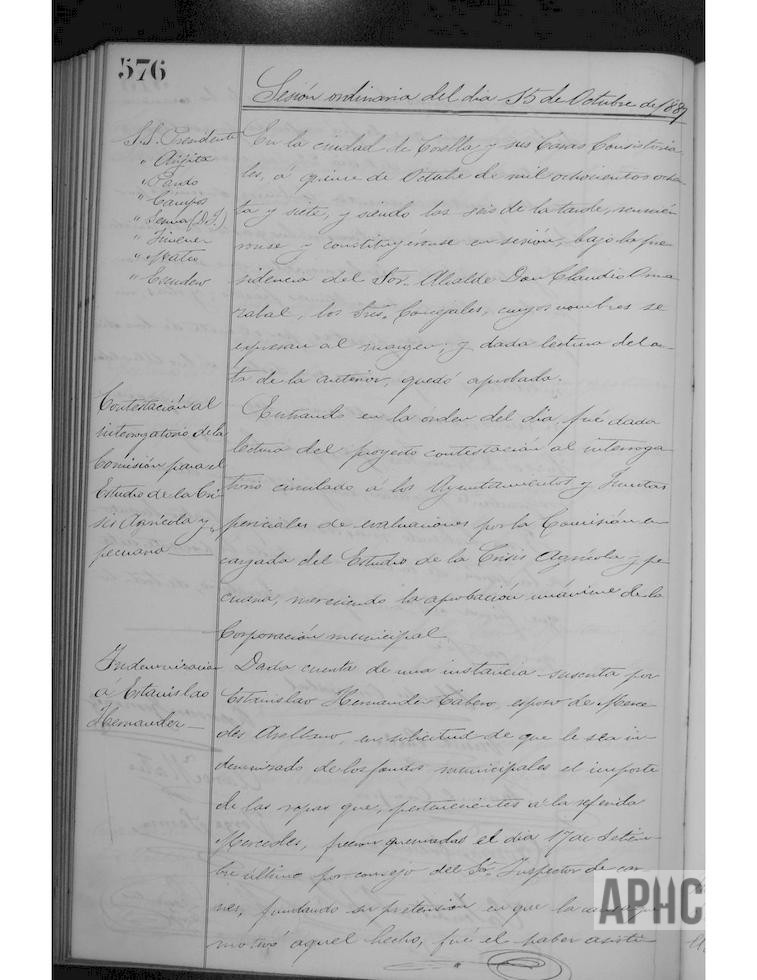 576
Sesión ordinaria del dia 15 de Octubre de 1887
S.S. Presidente
" Arijita
" Pardo
" Campos
" Serna (D. J.)
" Jimenez
" Matio
" Escudero
En la ciudad de Corella y sus Casas Consistoria
les, a quince de Octubre de mil ochocientos oche
ta y siete, y siendo las seis de la tarde, reunié
ronse y constituyéronse en sesión, bajo la pre
sidencia del Sor. Alcalde Don Claudio
los Sres. Concejales, cuyos nombres se
expresan al margen; y dada lectura del a-
ta de la anterior, quedó aprobada.
Contestación al
interrogatorio de la
Comisión para el
Estudio de la Cri
sis Agrícola y
pecuaria
Entrando en la órden del día, fué dada
lectura del proyecto contestación al interroga
torio circulado á los Ayuntamientos y Juntas
periciales de evaluaciones por la Comisión en
cargada del Estudio de la Crisis Agrícola y pe
cuaria, mereciendo la aprobación unánime de la
Corporación municipal.
Indemnizacion
á Estanislao
Hernandez
Dada cuenta de una instancia suscrita por
Estanislao Hernandez Cabero, esposo de Merce
des Arellano, en solicitud de que le sea in-
demnizado de los fondos municipales el importe
de las ropas que, pertenecientes a la referida
Mercedes, fueron quemadas el dia 17 de Setiem
bre último por consejo del Sr. Inspector de car
nes, fundando su pretensión en que la causa que
motivó aquel hecho, fué el haber asisti-
APHC